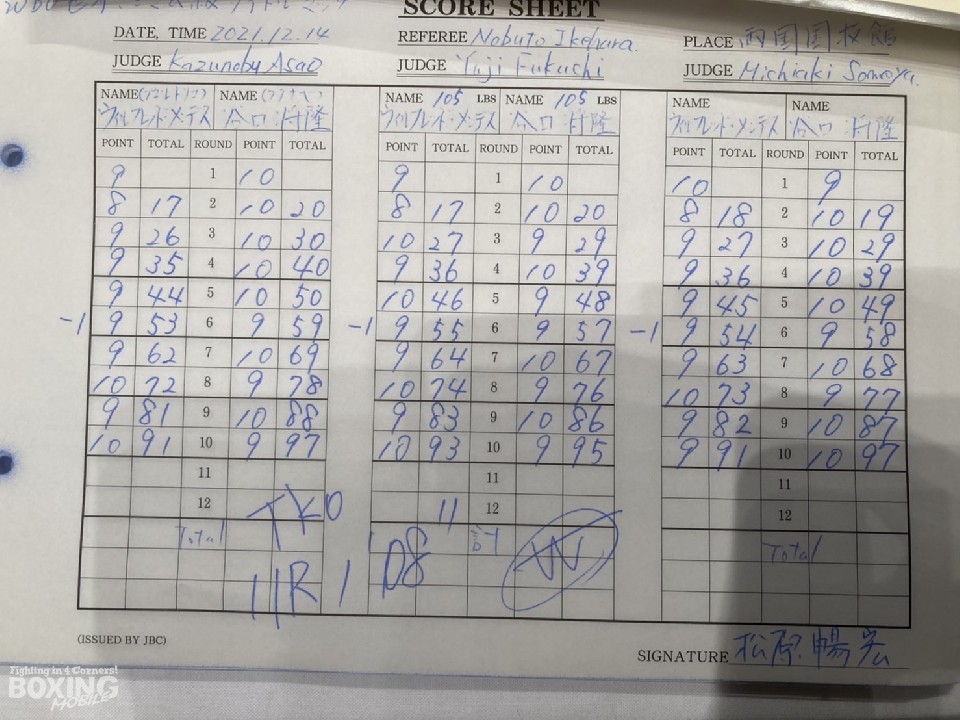 SCORE SHEET
DATE, TIME 2021.12.14 REFEREE Nobuto Ikehara PLACE 両国国技館
JUDGE Kazunobu Asao JUDGE Yuji Fukuchi JUDGE Michiaki Someya
NAME NAME NAME 105 LBS NAME 105 LBS NAME NAME
ウィルフレド・メンデス 谷口将隆 ウィルフレド・メンデス 谷口将隆 ウィルフレド・メンデス 谷口将隆
POINT TOTAL ROUND POINT TOTAL POINT TOTAL ROUND POINT TOTAL POINT TOTAL ROUND POINT TOTAL
9 1 10 9 1 10 10 1 9
8 17 2 10 20 8 17 2 10 20 8 18 2 10 19
9 26 3 10 30 10 27 3 9 29 9 27 3 10 29
9 35 4 10 40 9 36 4 10 39 9 36 4 10 39
9 44 5 10 50 10 46 5 9 48 9 45 5 10 49
-1 9 53 6 9 59 -1 9 55 6 9 57 -1 9 54 6 9 58
9 62 7 10 69 9 64 7 10 67 9 63 7 10 68
10 72 8 9 78 10 74 8 9 76 10 73 8 9 77
9 81 9 10 88 9 83 9 10 86 9 82 9 10 87
10 91 10 9 97 10 93 10 9 95 9 91 10 10 97
11 11 11
12 11 12 12
Total TKO 計 W Total
11R 1'08
(ISSUED BY JBC)
SIGNATURE 松原暢宏
Fighting in 4 Corners!
BOXING
MOBILE